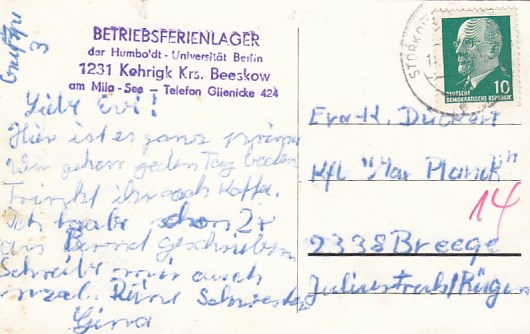 Gruppe
3
BETRIEBSFERIENLAGER
der Humboldt - Universität Berlin
1231 Kehrigk Krs. Beeskow
am Mila - See — Telefon Glienicke 424
Liebe Evi!
Hier ist es ganz prima
Wir gehen jeden Tag baden
Trinkt ihr noch Kaffe.
Ich habe schon 2x
an Bernd geschrieben
Schreibe mir auch
mal. Deine Schwester
Gina
STORKOW
DEUTSCHE
DEMOKRATISCHE REPUBLIK
10
Eva-K. Dückert
Kfl "Max Planck"
14
2338 Breege
Juliusruh/Rügen